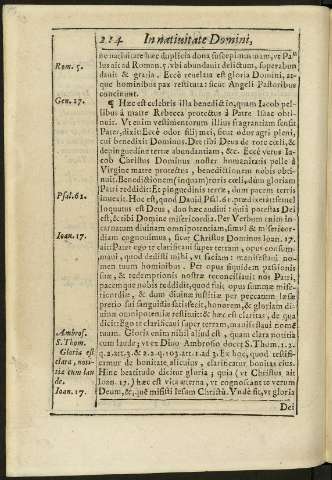 214 In nativitate Domini,
Rom. 5.
Gen. 27.
Psal. 61.
Ioan. 17.
Ambros.
S. Thom.
Gloria est
clara, noti-
tia cum lau
de.
Ioan. 17.
lus ait ad Roman. 5. vbi abundauit delictum, superabun
dauit & gratia. Eccè reuelata est gloria Domini, at-
que hominibus pax restituta: sicut Angeli Pastoribus
concinunt.
¶ Hæc est celebris illa benedictio, quam Iacob pel-
libus à matre Rebecca protectus à Patre Isaac obti-
nuit. Vt enim vestimentorum illius fragrantiam sensit
Pater, dixit: Eccè odor filij mei, sicut odor agri pleni,
cui benedixit Dominus. Det tibi Deus de rore cœli, &
de pinguedine terræ abundantiam, &c. Eccè verus Ia-
cob Christus Dominus noster humanitatis pelle à
Virgine matre protectus, benedictionem nobis obti-
nuit. Benedictionem (inquam) roris cœli, dum gloriam
Patri reddidit: Et pinguedinis terræ, dum pacem terris
inuexit. Hoc est, quod Dauid Psal. 61. prædixerat: semel
loquutus est Deus, duo hæc audiui: quia potestas Dei
est, & tibi Domine misericordia. Per Verbum enim in-
carnatum diuinam omnipotentiam, simul & misericor-
diam cognouimus, sicut Christus Dominus Ioan. 17.
ait: Pater ego te clarificaui super terram, opus consum-
maui, quod dedisti mihi, vt faciam: manifestaui no-
men tuum hominibus. Per opus siquidem passionis
suæ, & redemptionis nostræ reconciliauit nos Patri,
pacemque nobis reddidit, quod fuit opus summæ mise-
ricordiæ, & dum diuinæ iustitiæ per peccatum læsæ
pretio sui sanguinis satisfecit, honorem, & gloriam di-
uinæ omnipotentiæ restituit: & hæc est claritas, de qua
dicit: Ego te clarificaui super terram, manifestaui nomē
tuum. Gloria enim nihil aliud est, quam clara notitia
cum laude; vt ex Diuo Ambrosio docet S. Thom. 1. 2.
q. 2. art. 3. & 2. 2. q. 103. art. 1. ad 3. Ex hoc, quod testifi-
cemur de bonitate alicuius, clarificatur bonitas eius.
Hinc beatitudo dicitur gloria; quia (vt Christus ait
Ioan. 17.) hæc est vita æterna, vt cognoscant te verum
Deum, &, quē misisti Iesum Christū. Vnde fit, vt gloria
Dei